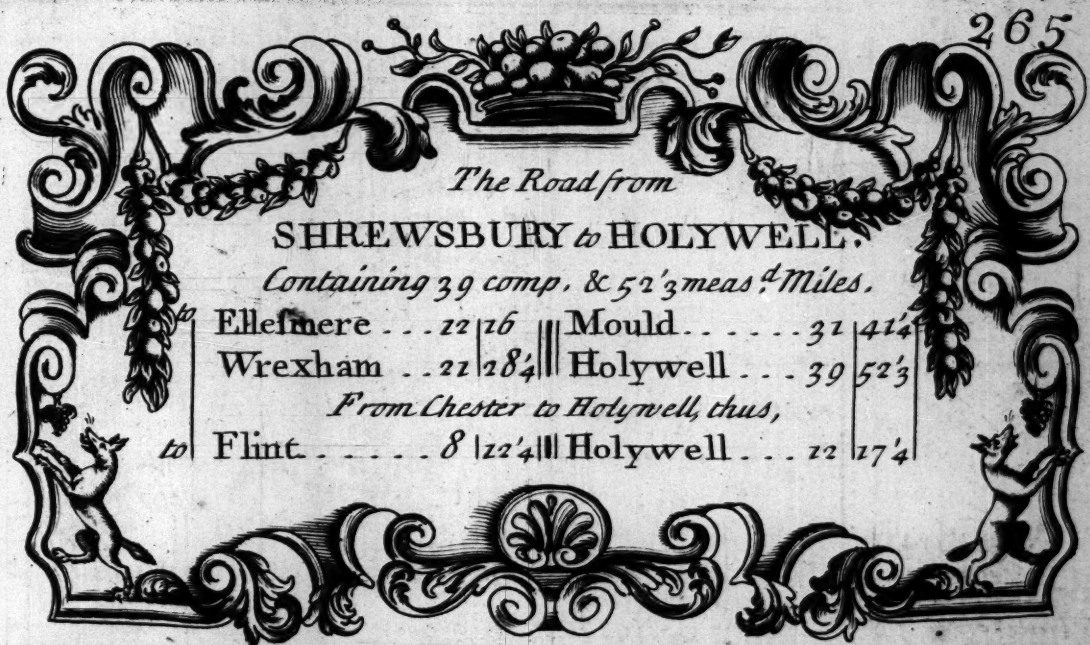 265
The Road from
SHREWSBURY to HOLYWELL.
Containing 39 comp. & 52'3 meas.d Miles.
to Elleſmere ... 12 | 16 ||| Mould ...... 31 | 41'4
Wrexham .. 21 | 28'4 ||| Holywell ... 39 | 52'3
From Chester to Holywell, thus,
to Flint ....... 8 | 12'4 ||| Holywell ... 12 | 17'4